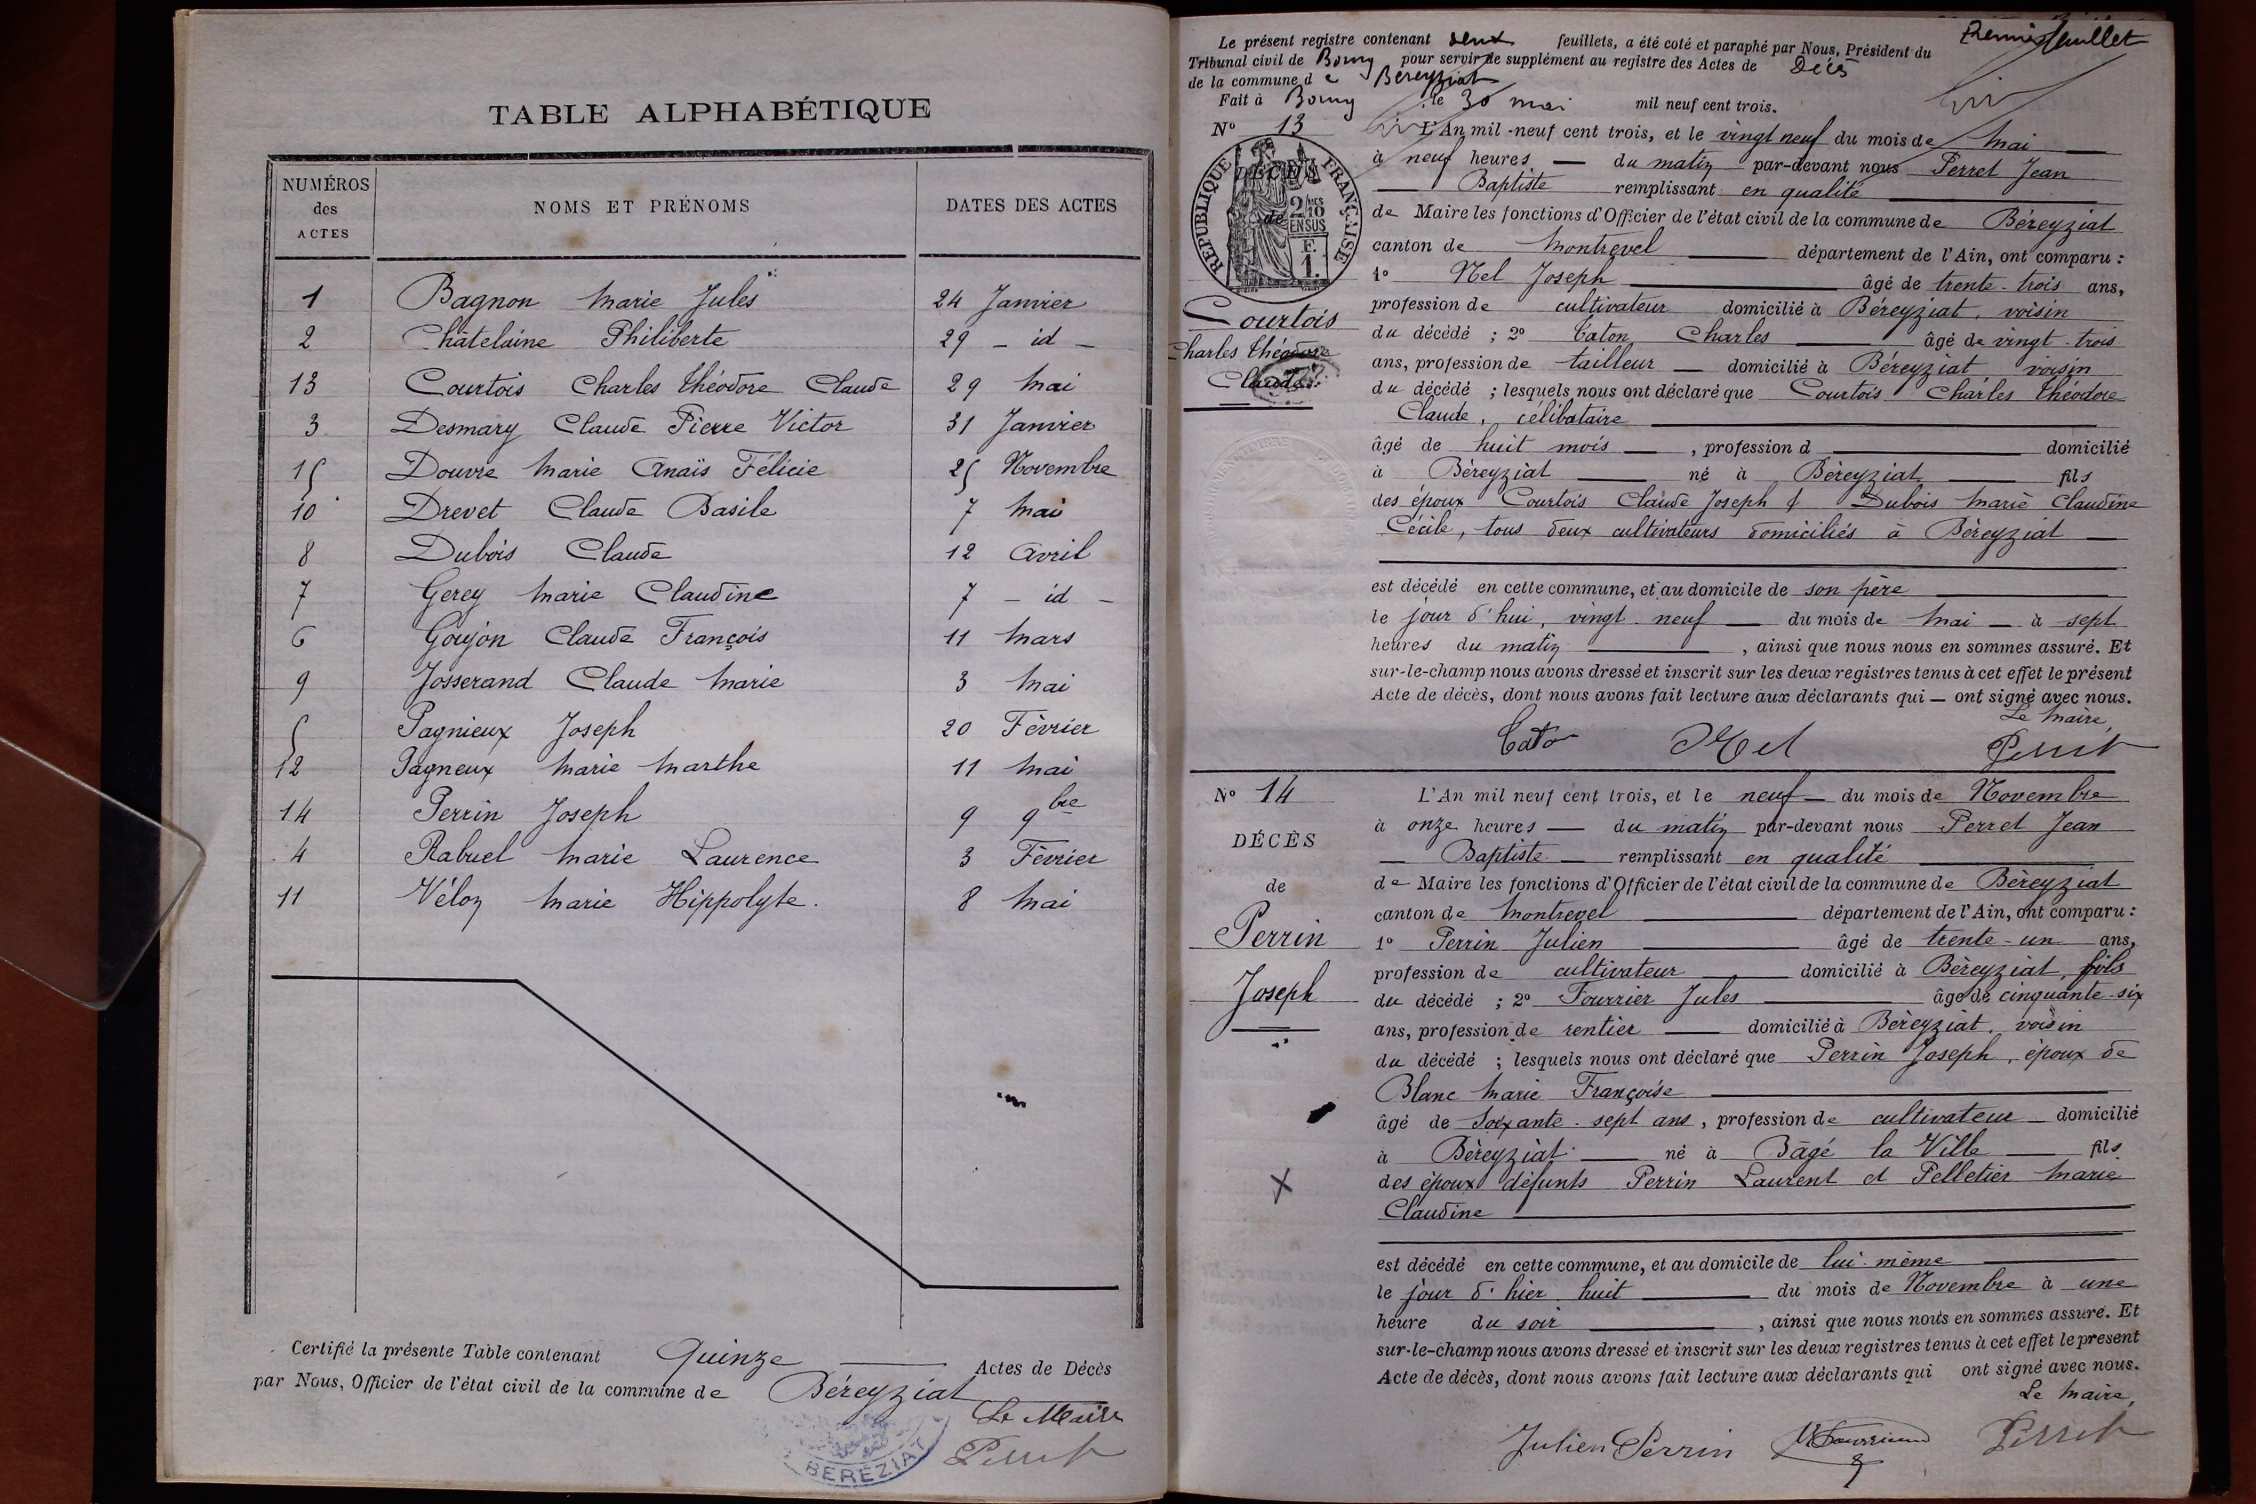 TABLE ALPHABÉTIQUE
NUMÉROS des ACTES
NOMS ET PRÉNOMS
DATES DES ACTES
1 Bagnon Marie Jules 24 Janvier
2 Châtelaine Philiberte 29 - id -
13 Courtois Charles Théodore Claude 29 Mai
3 Desmary Claude Pierre Victor 31 Janvier
15 Douvre Marie Anaïs Félicie 25 Novembre
10 Drevet Claude Basile 7 Mai
8 Dubois Claude 12 Avril
7 Gerey Marie Claudine 7 - id -
6 Goujon Claude François 11 Mars
9 Josserand Claude Marie 3 Mai
5 Pagnieux Joseph 20 Février
12 Pagneux Marie Marthe 11 Mai
14 Perrin Joseph 9 9bre
4 Rabuel Marie Laurence 3 Février
11 Vélon Marie Hippolyte. 8 Mai
Certifié la présente Table contenant Quinze Actes de Décès
par Nous, Officier de l'état civil de la commune de Béreyziat
Le Maire
Perret
BEREZIAT
Premier feuillet
Le présent registre contenant deux feuillets, a été coté et paraphé par Nous, Président du
Tribunal civil de Bourg pour servir de supplément au registre des Actes de Décès
de la commune de Béreyziat
Fait à Bourg, le 30 mai mil neuf cent trois.
N° 13
DÉCÈS
de
RÉPUBLIQUE FRANÇAISE
2/10 EN SUS
F. 1.
Courtois
Charles Théodore
Claude
L'An mil-neuf cent trois, et le vingt neuf du mois de Mai
à neuf heures — du matin par-devant nous Perret Jean
Baptiste remplissant en qualité
de Maire les fonctions d'Officier de l'état civil de la commune de Béreyziat
canton de Montrevel département de l'Ain, ont comparu :
1° Nel Joseph âgé de trente-trois ans,
profession de cultivateur domicilié à Béreyziat, voisin
du décédé ; 2° Caton Charles âgé de vingt-trois
ans, profession de tailleur — domicilié à Béreyziat voisin
du décédé ; lesquels nous ont déclaré que Courtois Charles Théodore
Claude, célibataire
âgé de huit mois —, profession d domicilié
à Béreyziat né à Béreyziat fils
des époux Courtois Claude Joseph & Dubois Marie Claudine
Cécile, tous deux cultivateurs domiciliés à Béreyziat —
est décédé en cette commune, et au domicile de son père
le jour d'hui, vingt-neuf — du mois de Mai — à sept
heures du matin, ainsi que nous nous en sommes assuré. Et
sur-le-champ nous avons dressé et inscrit sur les deux registres tenus à cet effet le présent
Acte de décès, dont nous avons fait lecture aux déclarants qui — ont signé avec nous.
Le Maire,
Caton Nel Perret
N° 14
DÉCÈS
de
Perrin
Joseph
L'An mil neuf cent trois, et le neuf — du mois de Novembre
à onze heures — du matin par-devant nous Perret Jean
— Baptiste — remplissant en qualité
de Maire les fonctions d'Officier de l'état civil de la commune de Béreyziat
canton de Montrevel département de l'Ain, ont comparu :
1° Perrin Julien âgé de trente-un ans,
profession de cultivateur domicilié à Béreyziat, fils
du décédé ; 2° Fourrier Jules âgé de cinquante-six
ans, profession de rentier — domicilié à Béreyziat, voisin
du décédé ; lesquels nous ont déclaré que Perrin Joseph, époux de
Blanc Marie Françoise
âgé de soixante-sept ans, profession de cultivateur — domicilié
à Béreyziat — né à Bâgé la Ville — fils
des époux défunts Perrin Laurent et Pelletier Marie
Claudine
est décédé en cette commune, et au domicile de lui-même
le jour d'hier huit du mois de Novembre à une
heure du soir, ainsi que nous nous en sommes assuré. Et
sur-le-champ nous avons dressé et inscrit sur les deux registres tenus à cet effet le présent
Acte de décès, dont nous avons fait lecture aux déclarants qui ont signé avec nous.
Le Maire,
Julien Perrin Perret